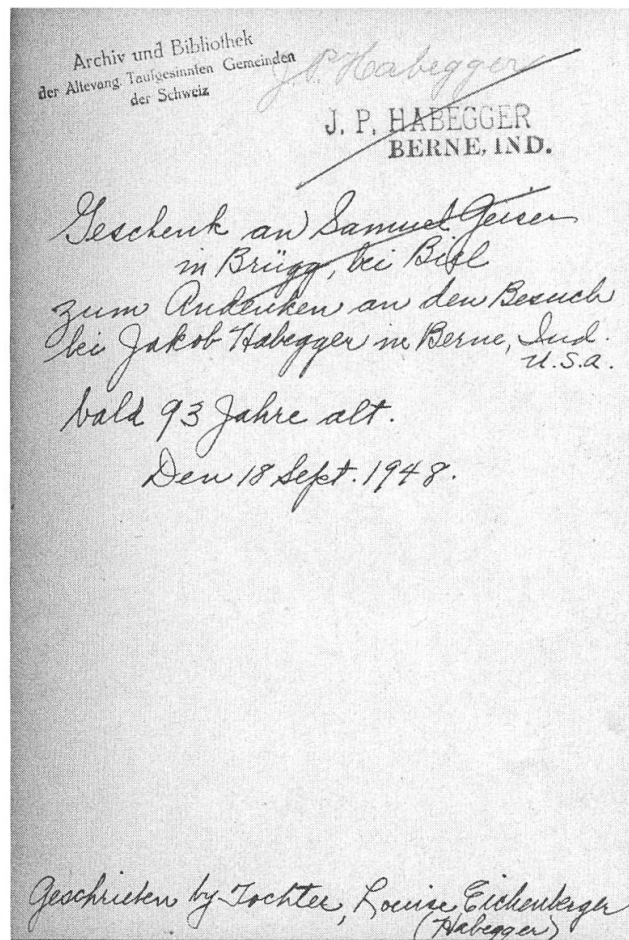 Archiv und Bibliothek
der Altevang. Taufgesinnten Gemeinden
der Schweiz
J. P. Habegger
J. P. HABEGGER
BERNE, IND.
Geschenk an Samuel Geiser
in Brügg, bei Biel
zum Andenken an den Besuch
bei Jakob Habegger in Berne, Ind.
U.S.a.
bald 93 Jahre alt.
Den 18 Sept. 1948.
Geschrieben by Tochter, Louise Eichenberger
(Habegger)